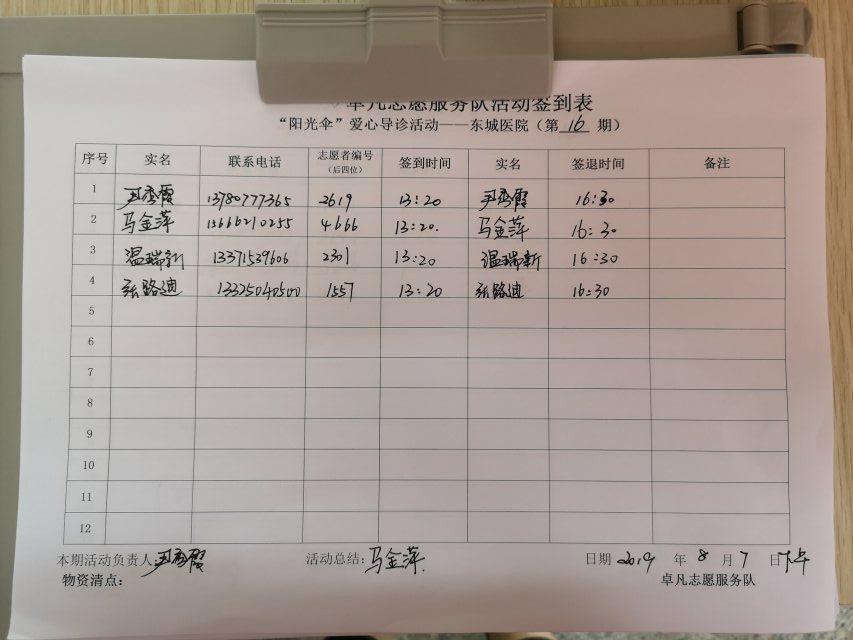 卓凡志愿服务队活动签到表
“阳光伞”爱心导诊活动——东城医院（第 16 期）
序号 实名 联系电话 志愿者编号（后四位） 签到时间 实名 签退时间 备注
1 尹秀霞 13780777365 2619 13:20 尹秀霞 16:30
2 马金萍 15666210255 4666 13:20. 马金萍 16:30
3 温瑞新 13371539606 2301 13:20 温瑞新 16:30
4 张路迪 13325040500 1557 13:20 张路迪 16:30
5
6
7
8
9
10
11
12
本期活动负责人:尹秀霞 活动总结:马金萍. 日期 2019 年 8 月 7 日下午
物资清点： 卓凡志愿服务队